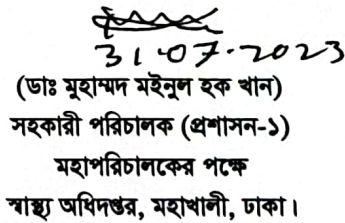 31.07.2023
(ডাঃ মুহাম্মদ মইনুল হক খান)
সহকারী পরিচালক (প্রশাসন-১)
মহাপরিচালকের পক্ষে
স্বাস্থ্য অধিদপ্তর, মহাখালী, ঢাকা।